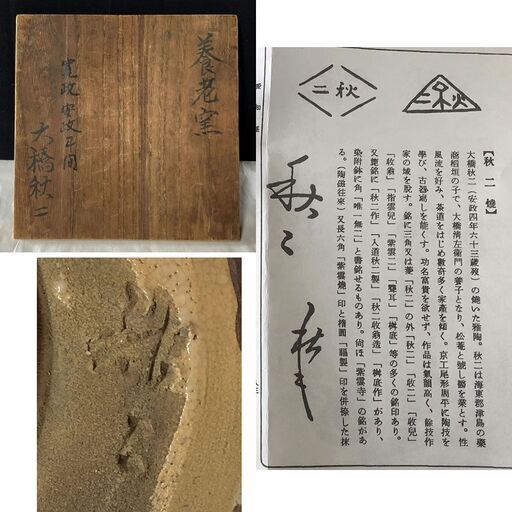 養老窯
寛政安政年間
大橋秋二
二秋
秋二
【秋二燒】
大橋秋二(安政四年六十三歲歿)の燒いた雅陶。秋二は海東郡津島の藥
商稻垣の子で、大橋淸左衞門の養子となり、松菴と號し醫を業とす。性
風流を好み、茶道をはじめ數奇多く家產を傾く。京工尾形周平に陶技を
學び、古器寫しを能くす。功名富貴を欲せず、作品は氣韻高く、餘技作
家の域を脫す。銘に三角又は菱「秋二」の外「秋二」「收二」「收兒」
「收翁」「指雲兒」「紫雲二」「聾耳」「桝底」等の多くの銘印あり。
又篦銘に「秋二作」「入道秋二製」「秋二收翁造」「桝底作」があり、
染附鉢に角「唯一無二」と書銘せるものあり。尙ほ「紫雲寺」の銘があ
る。(陶磁往來)又長六角「紫雲燒」印と橢圓「碾製」印を併捺した抹
秋二